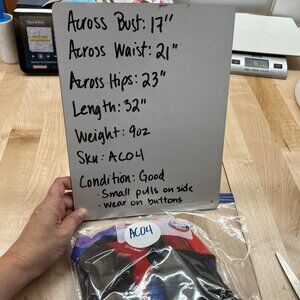 Across Bust: 17"
Across Waist: 21"
Across Hips: 23"
Length: 32"
Weight: 9oz
Sku: AC04
Condition: Good
· Small pulls on side
· Wear on buttons
AC04